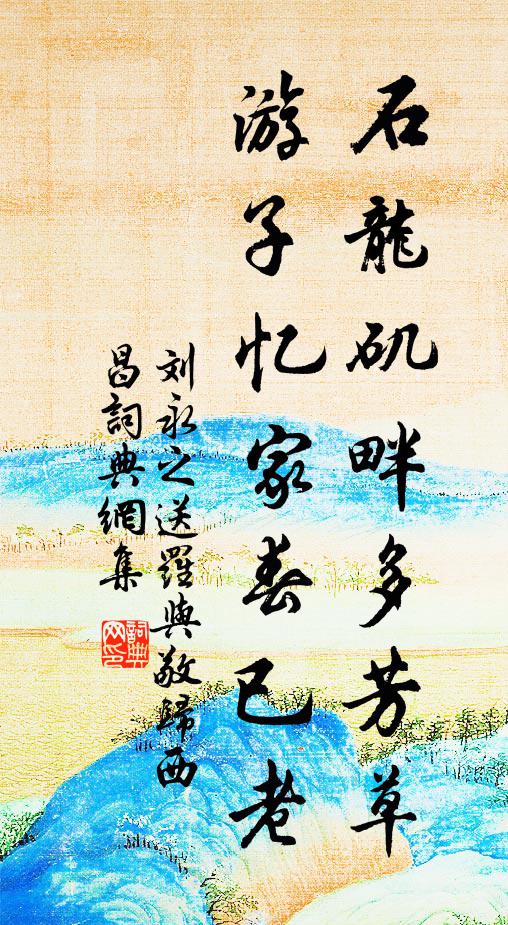 石龍矶畔多芳草
游子忆家春已老
刘永之送羅與敬歸西
昌詞典網集
詞典网印